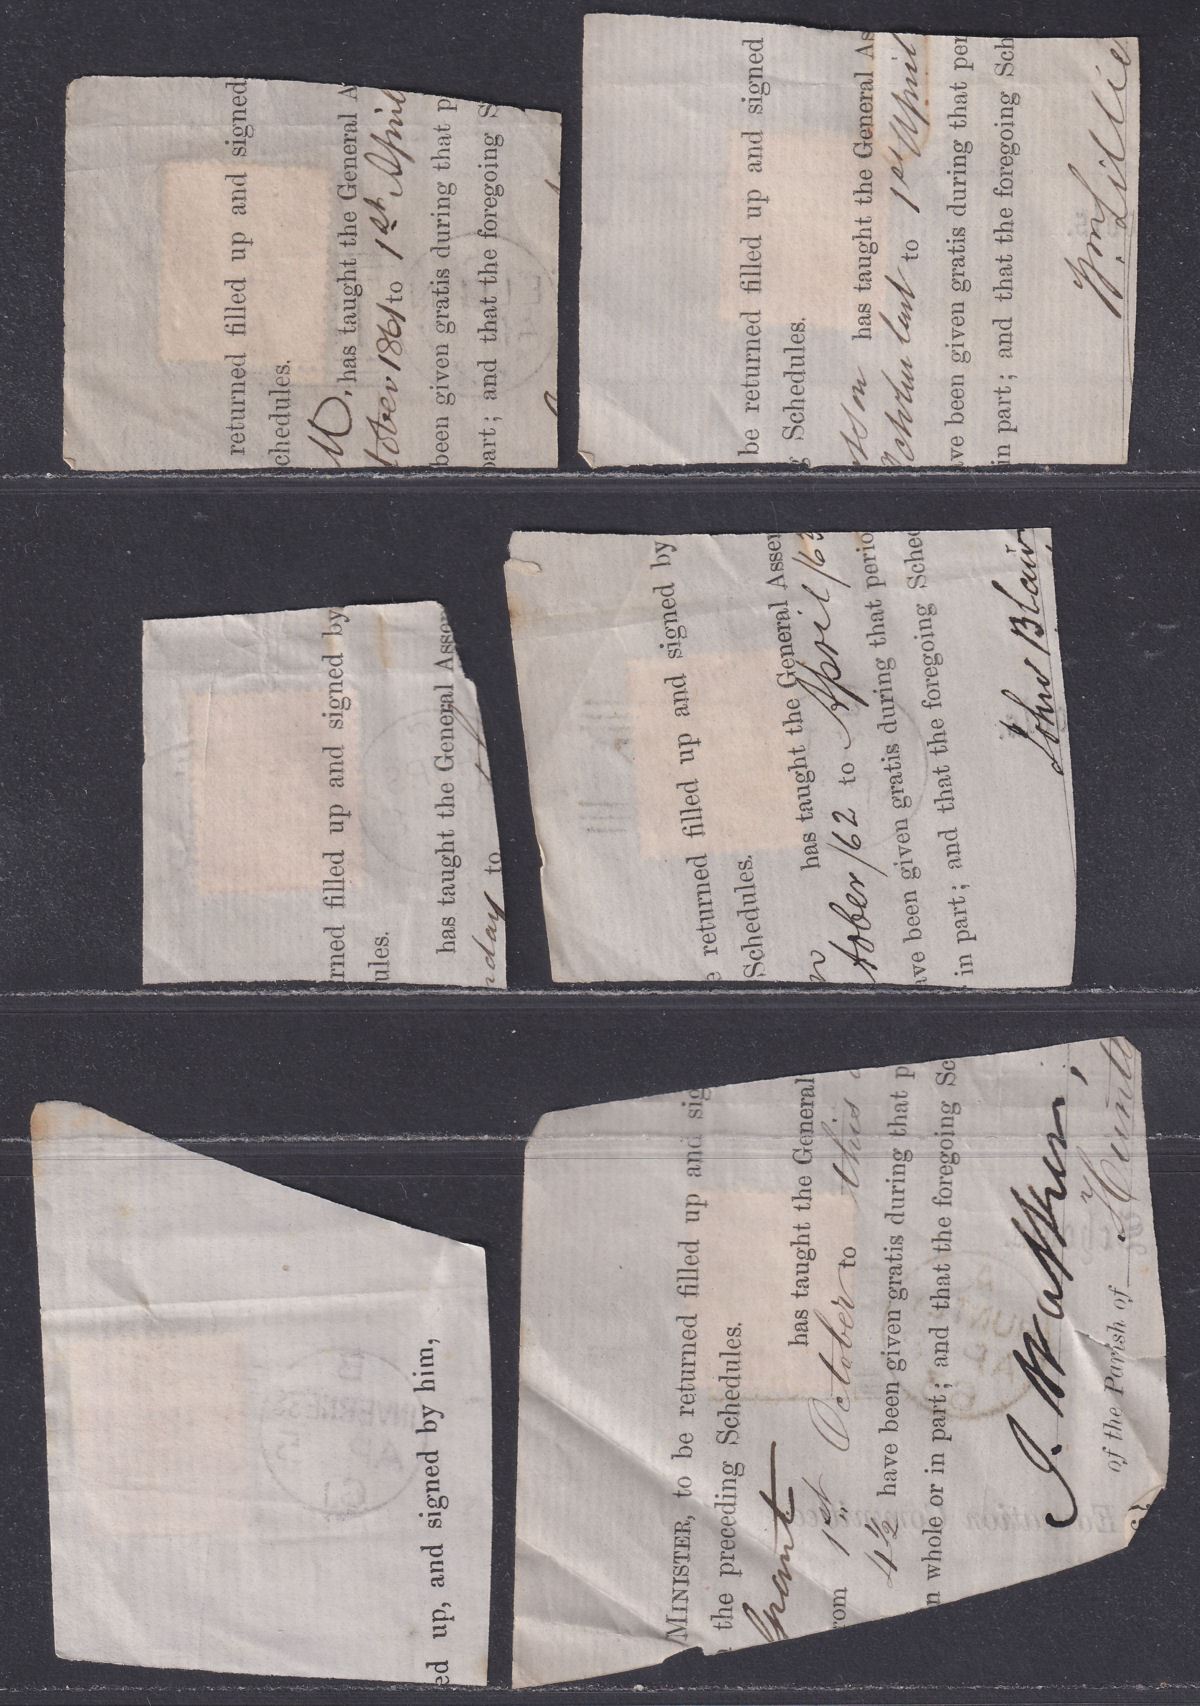 returned filled up and signed
chedules.
has taught the General A
tober 1861 to 1st April
been given gratis during that p
part; and that the foregoing S
be returned filled up and signed
Schedules.
has taught the General As
October last to 1st April
ave been given gratis during that per
in part; and that the foregoing Sch
Wm Lillie
rned filled up and signed by
ules.
has taught the General Assem
nday to
e returned filled up and signed by
Schedules.
has taught the General Assem
tober/62 to April/63
ave been given gratis during that perio
in part; and that the foregoing Sched
John Blair
ed up, and signed by him,
INVERNESS
AP
61
MINISTER, to be returned filled up and sig
the preceding Schedules.
Grant
has taught the General
rom 1st October to this
4½ have been given gratis during that p
n whole or in part; and that the foregoing Sc
of the Parish of
Education Committee